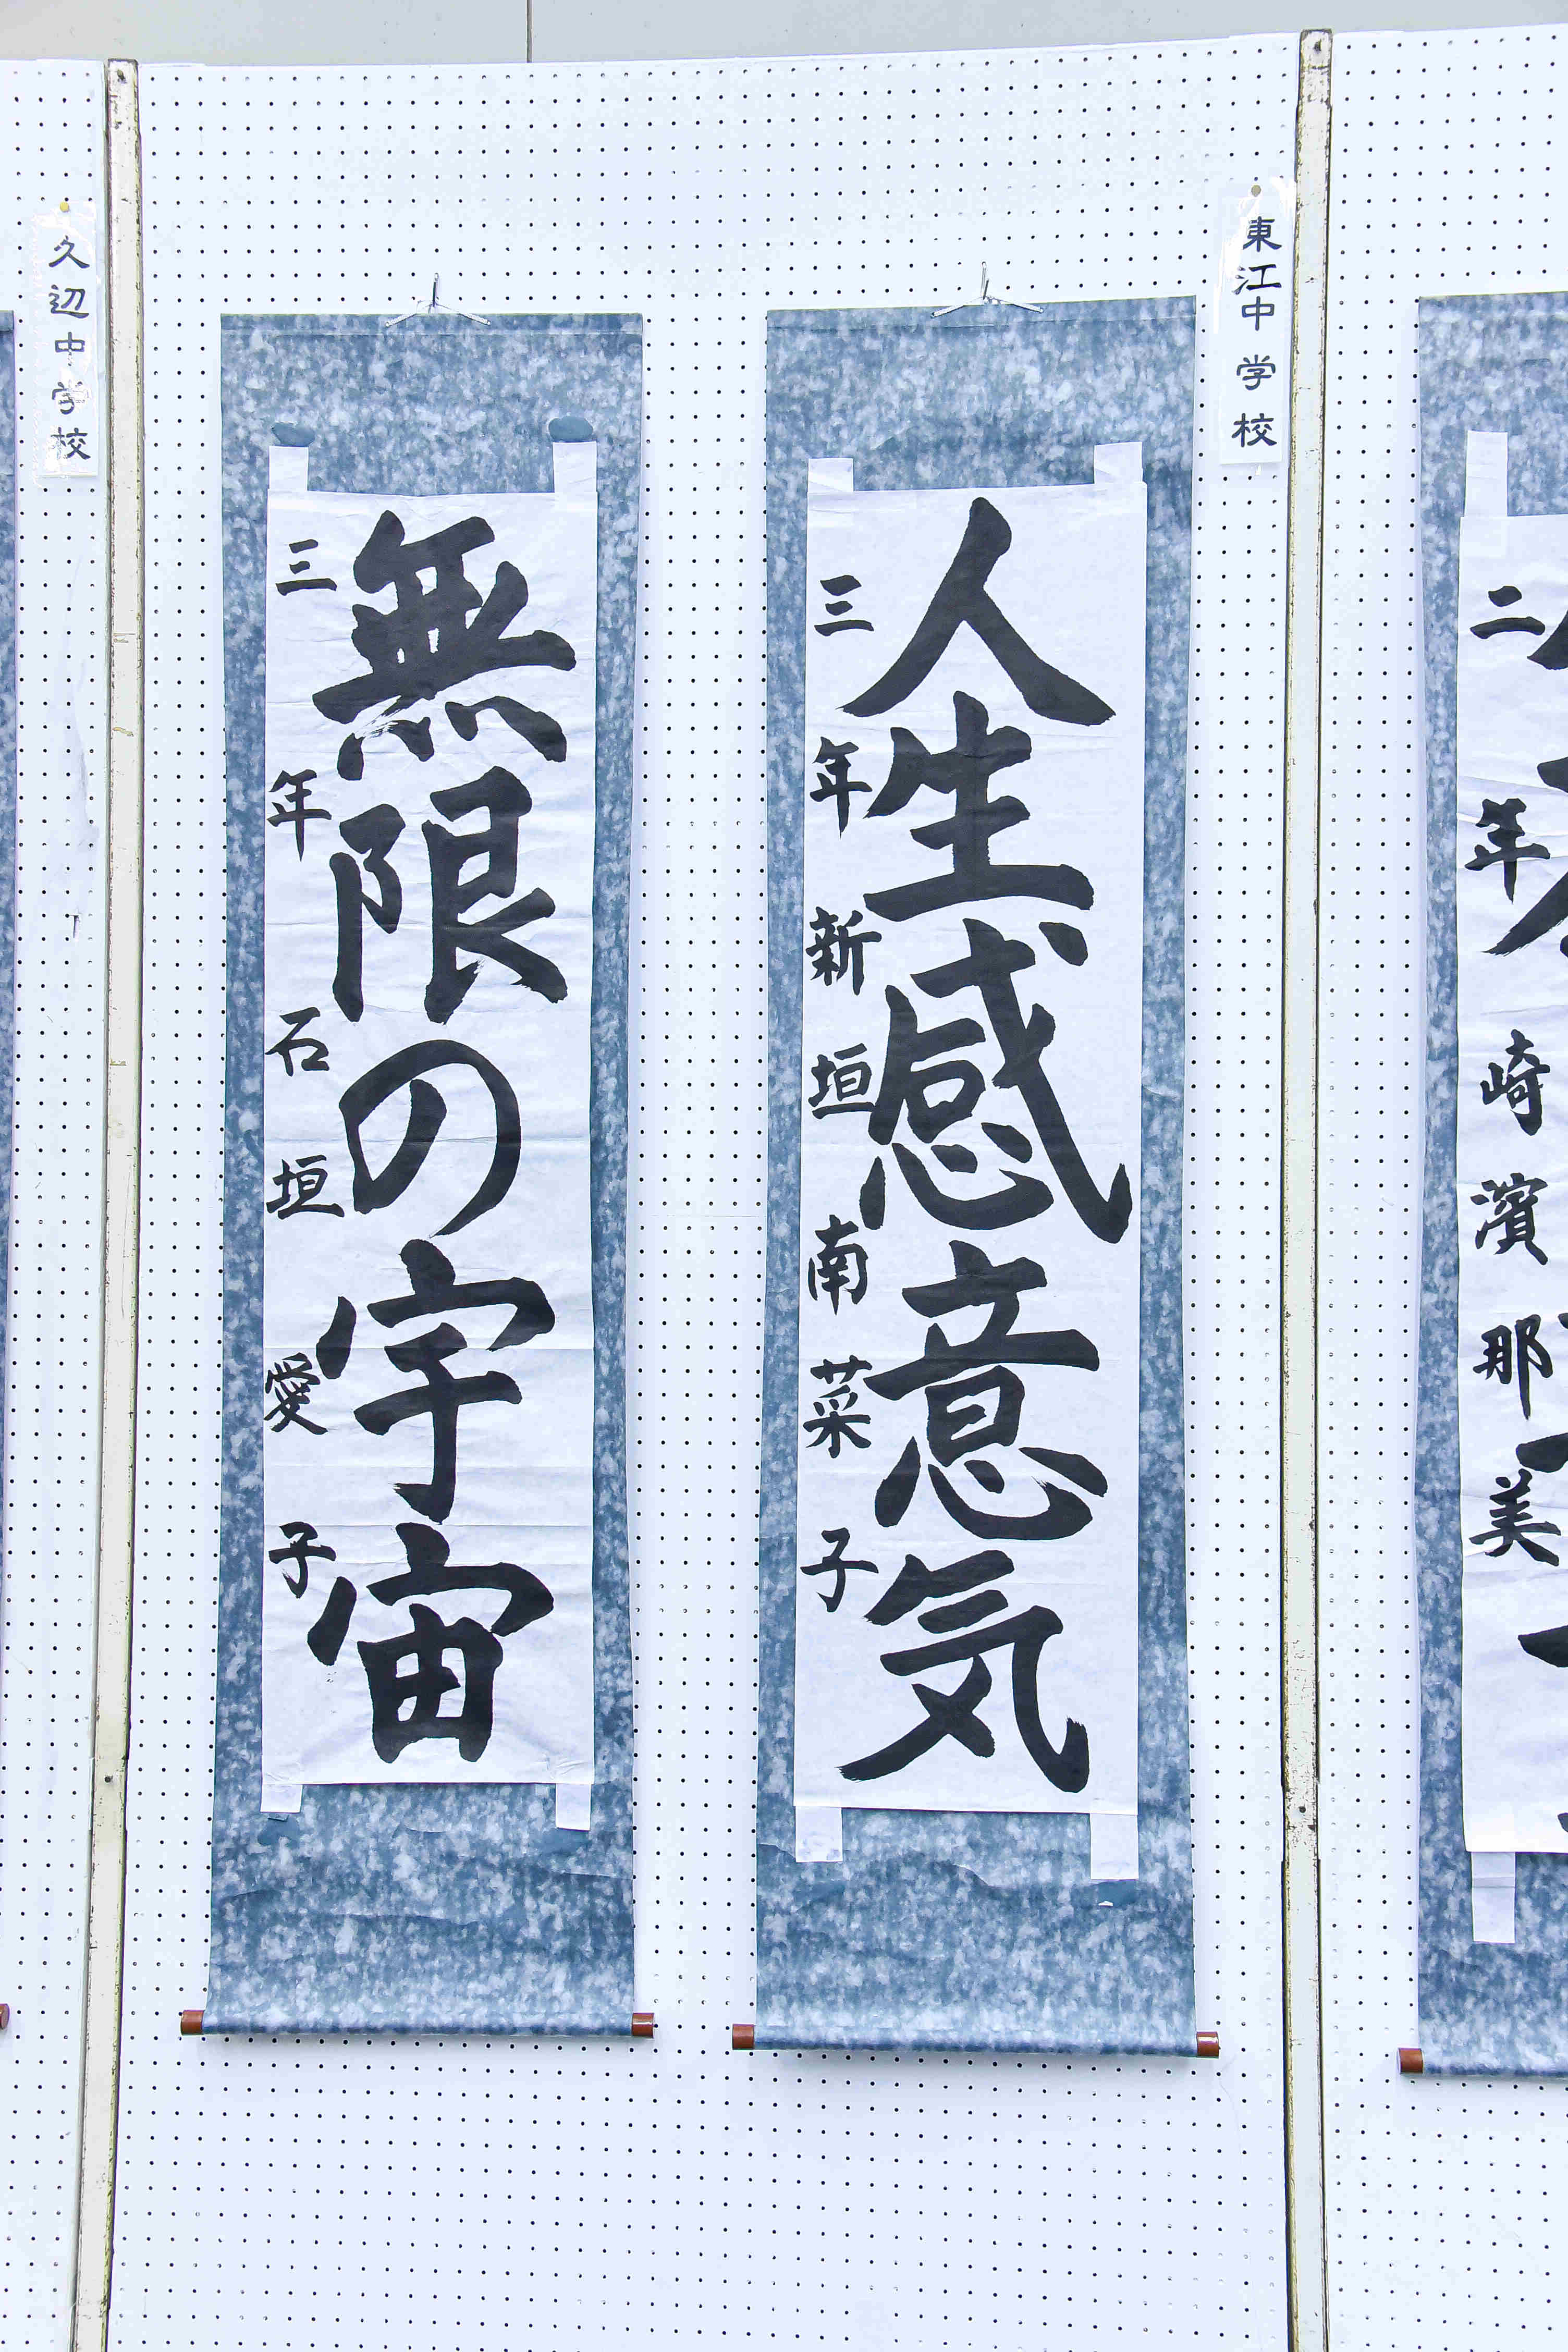 東江中学校
人生感意気
三年 新垣南菜子
無限の宇宙
三年 石垣愛子
久辺中学校
二年 崎濱那美